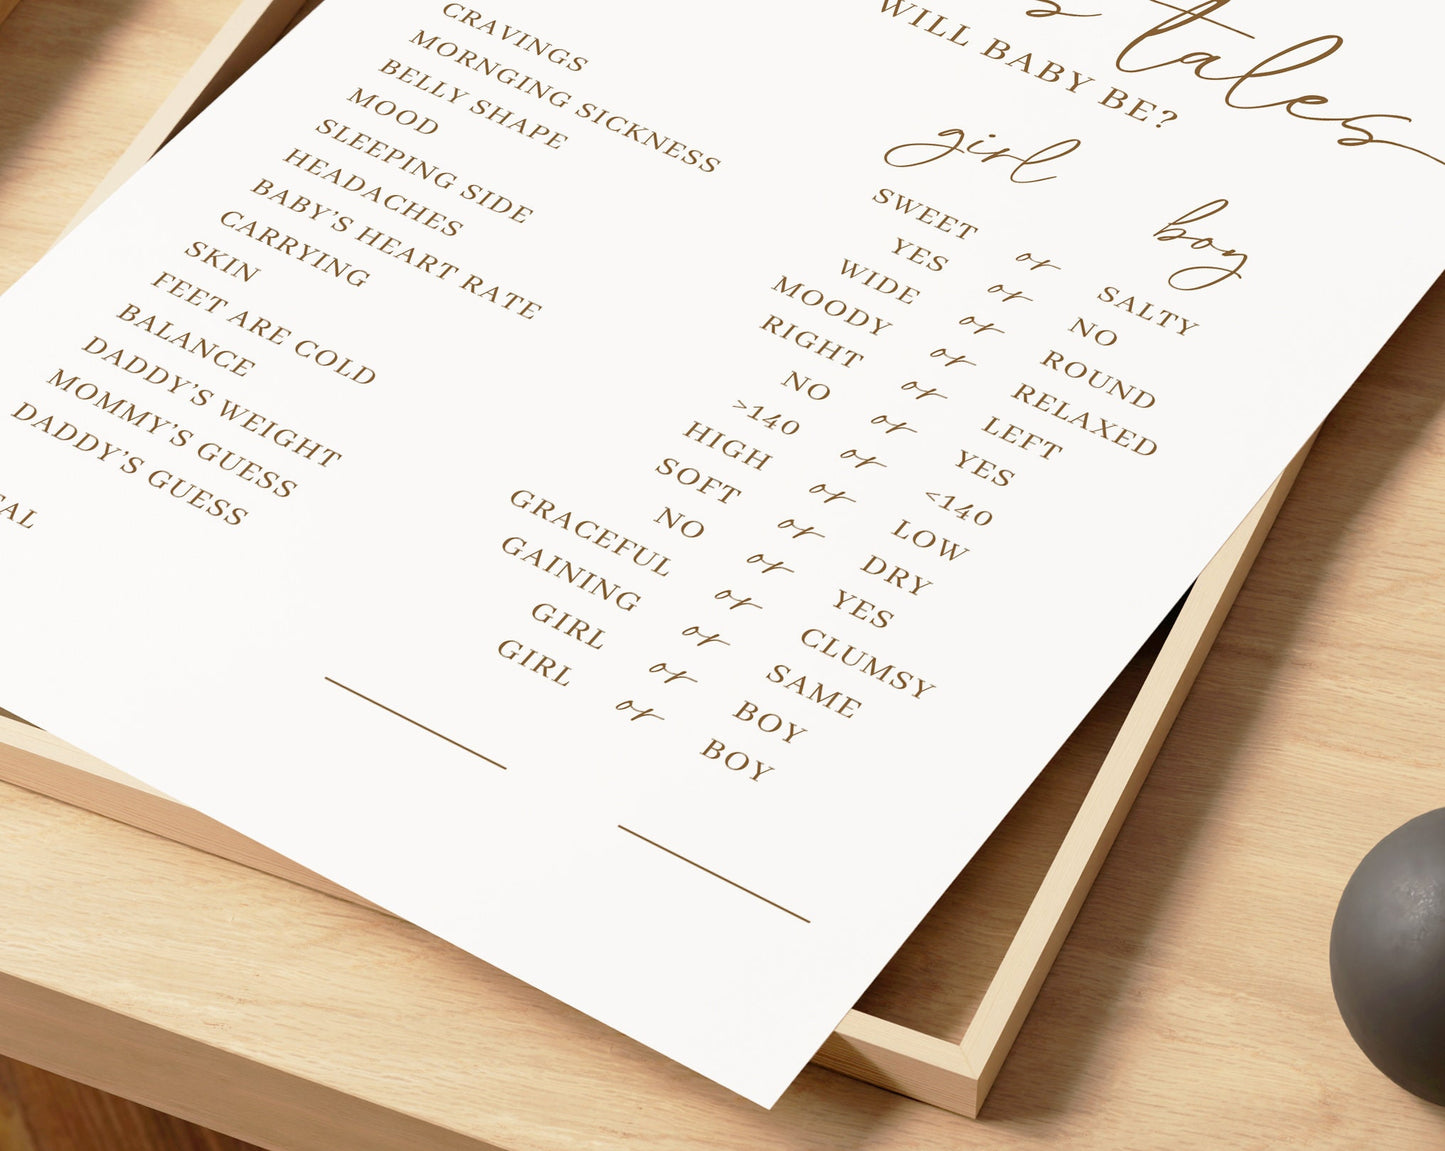 tales
WILL BABY BE?
girl boy
CRAVINGS SWEET or SALTY
MORNGING SICKNESS YES or NO
BELLY SHAPE WIDE or ROUND
MOOD MOODY or RELAXED
SLEEPING SIDE RIGHT or LEFT
HEADACHES NO or YES
BABY'S HEART RATE >140 or <140
CARRYING HIGH or LOW
SKIN SOFT or DRY
FEET ARE COLD NO or YES
BALANCE GRACEFUL or CLUMSY
DADDY'S WEIGHT GAINING or SAME
MOMMY'S GUESS GIRL or BOY
DADDY'S GUESS GIRL or BOY